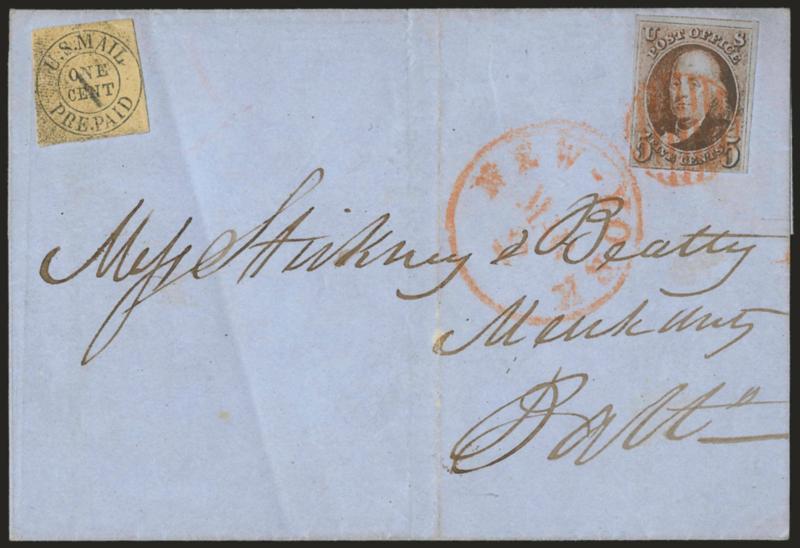 U.S. MAIL
ONE
CENT
PRE.PAID
U S
POST OFFICE
5 FIVE CENTS 5
NEW-YORK
Mess Stickney & Beatty
Merchants
Balto